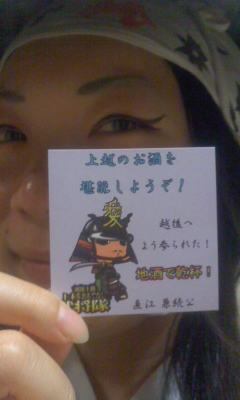 上越のお酒を
堪能しようぞ！
愛
越後へ
よう参られた！
地酒で乾杯！
武将隊
直江 兼続公